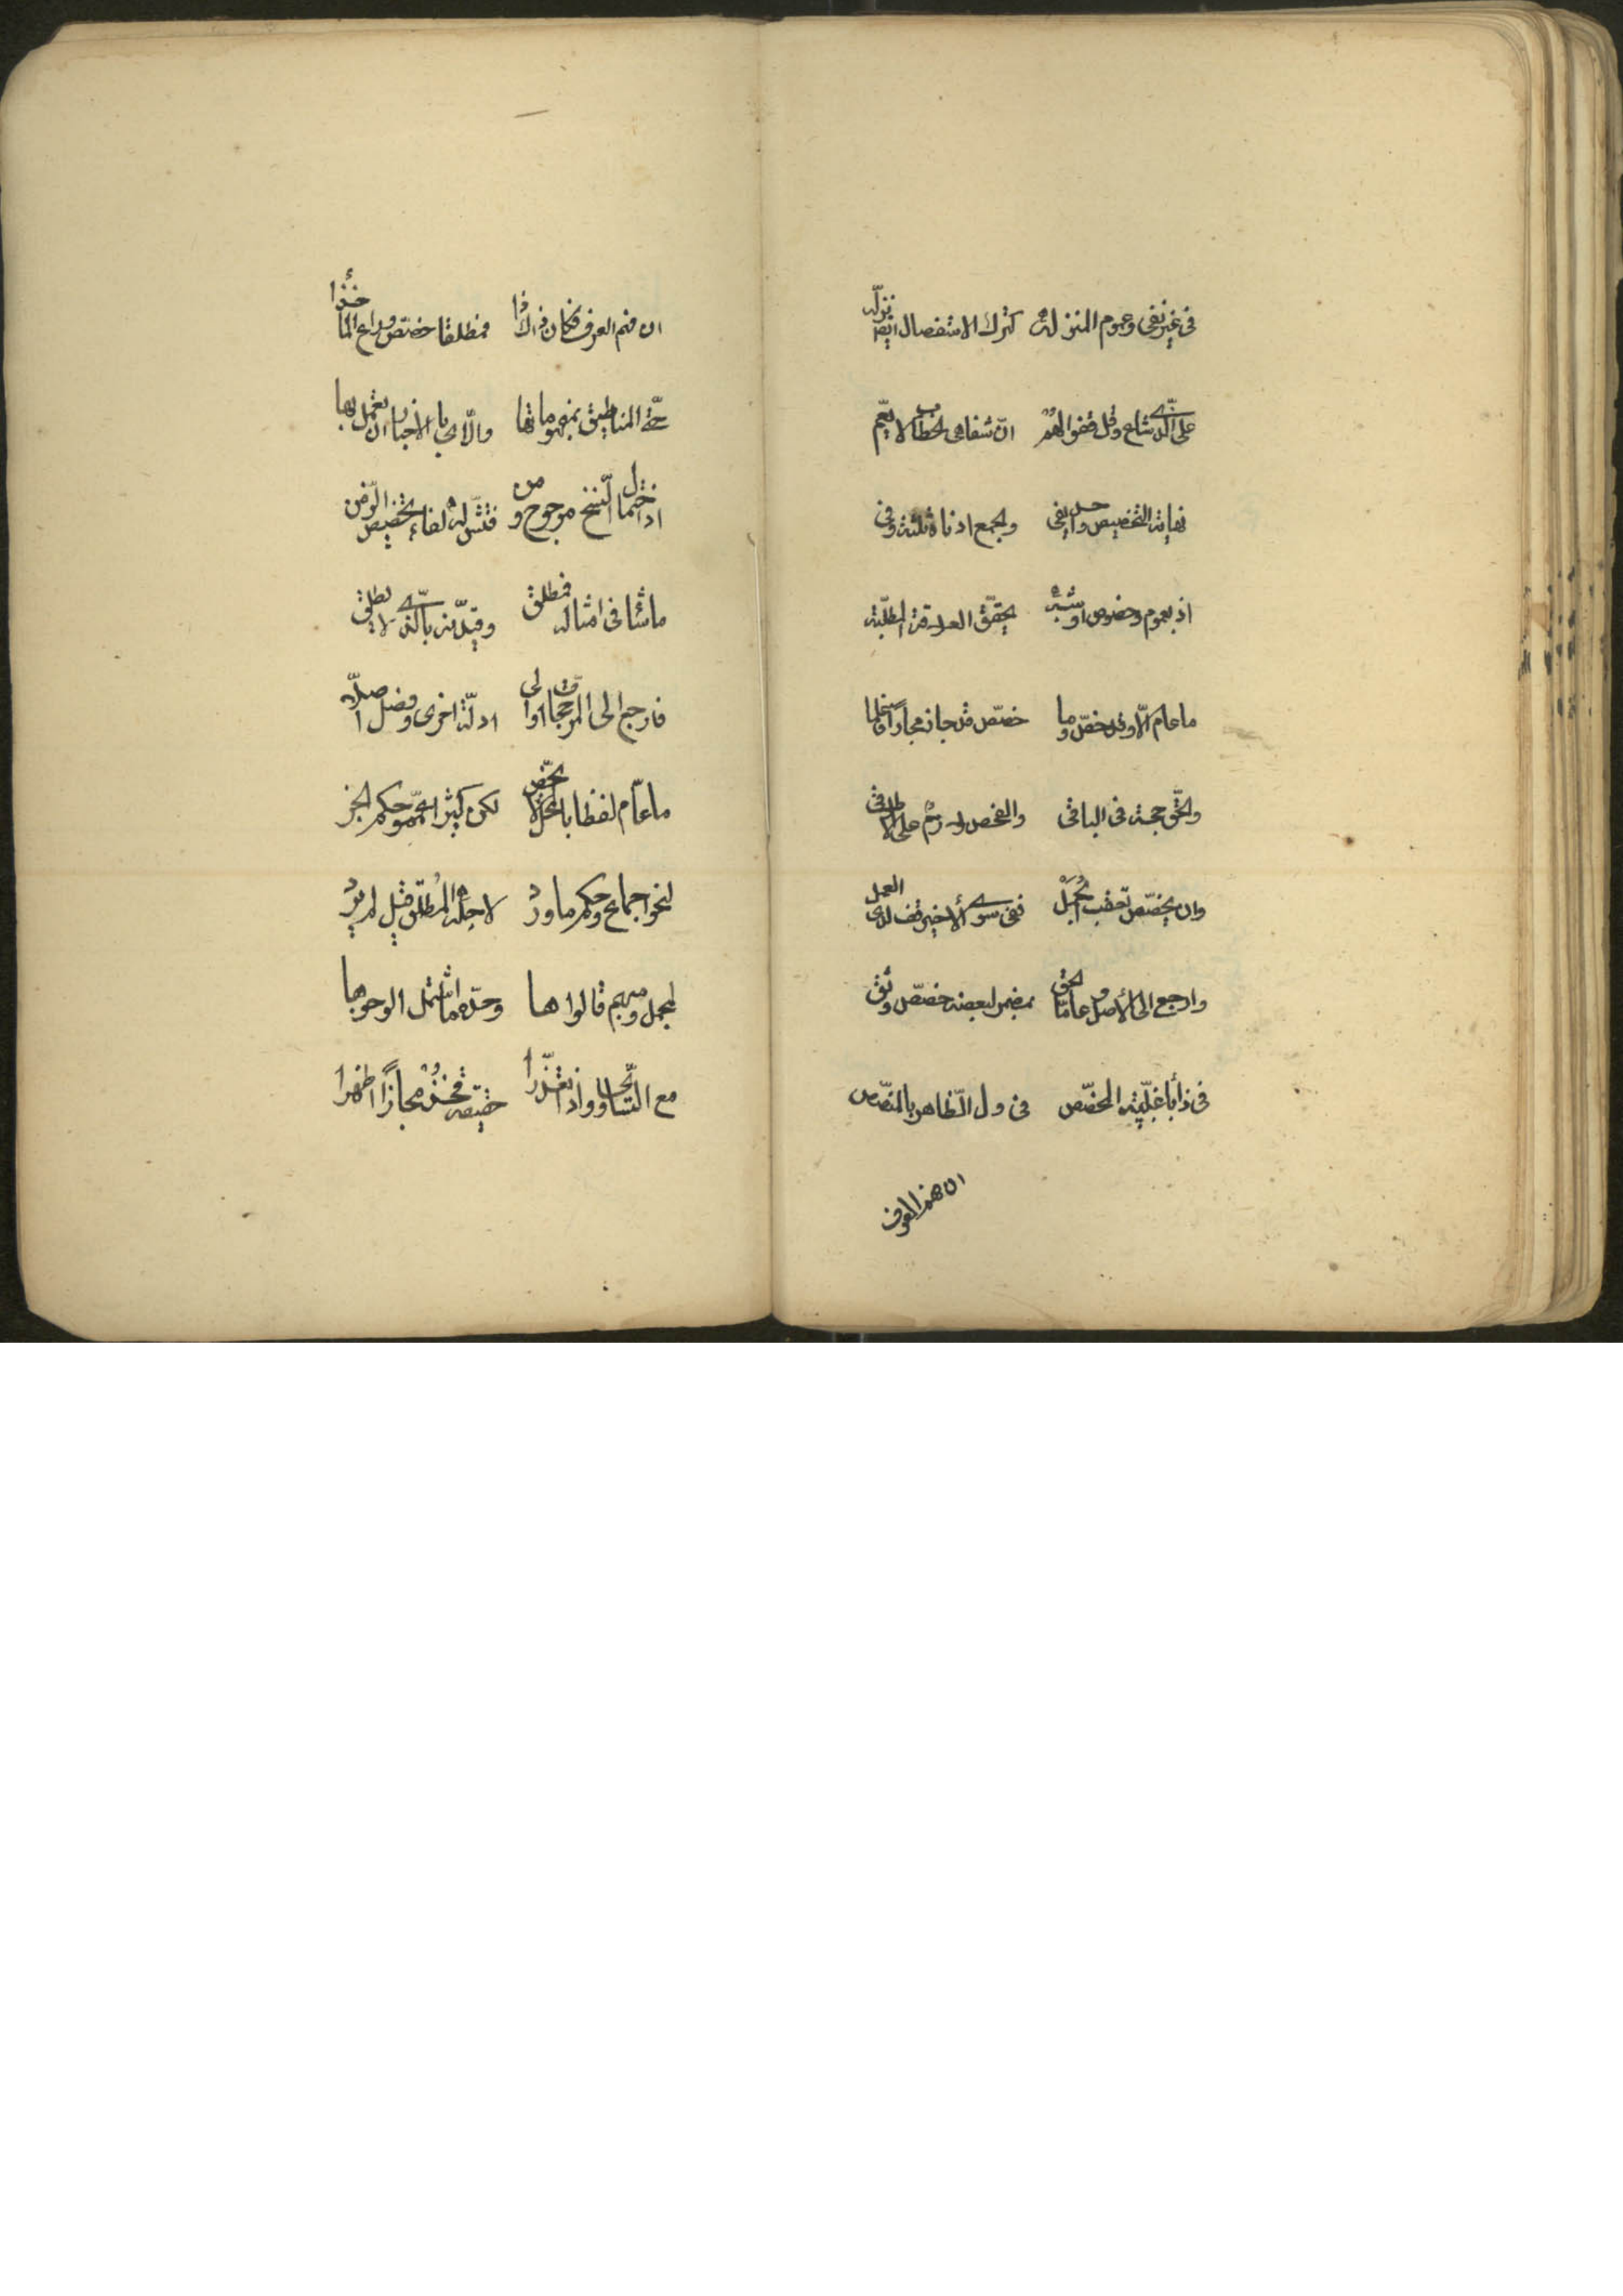 فى غير نفى وعموم المنزله كترك الاستفصال ايضا نزله
على الّذى شاع وقل قفوا لهم انّ شفاهى الخطاب لا يعمّ
نهاية التخصيص واحد يفى والجمع ادناه ثلثة وفى
اذ بعموم وخصوص او شبه تحقّق العلاقة المطلّبة
ما عام الّا وقد خصّ وما خصّص قد جاز مجازا فاعلما
والحقّ حجة فى الباقى والفحص لازم على الاطلاق
وان يخصّص تعقب الجمل ففى سوى الأخير قف لدى العمل
وارجع الى الأصل وعامّا لحق بمضمر لبعضه خصّص وثق
فى ذا بأغلبيّة المخصّص فى ول الظّاهر بالمنصّص
ان فهم العرف
ان فهم العرف فكان ذا كذا فمطلقا خصّص وراع المأخذا
حتّى المناطيق بمفهوماتها والآى بالاخبار ان يعمل بها
اذ احتمال النّسخ مرجوح ومن تخصيص الزّمن
ما شاع فى امثاله فمطلق وقيّدنه بالّذى لا يطلق
فارجع الى المرجّحات او الى ادلّة اخرى وفضل اصلا
ما عامّ لفظا بالمحلّ لا يخصّ لكن كثيرا
لنحو اجماع وحكم ما ورد لاجله المطلق قيل لم يرد
لمجمل ومبهم قالوا ها وحدّه ما اشتمل الوجوها
مع التّساوى واذا تعذّرا حقيقة فخذ مجازًا اظهرا